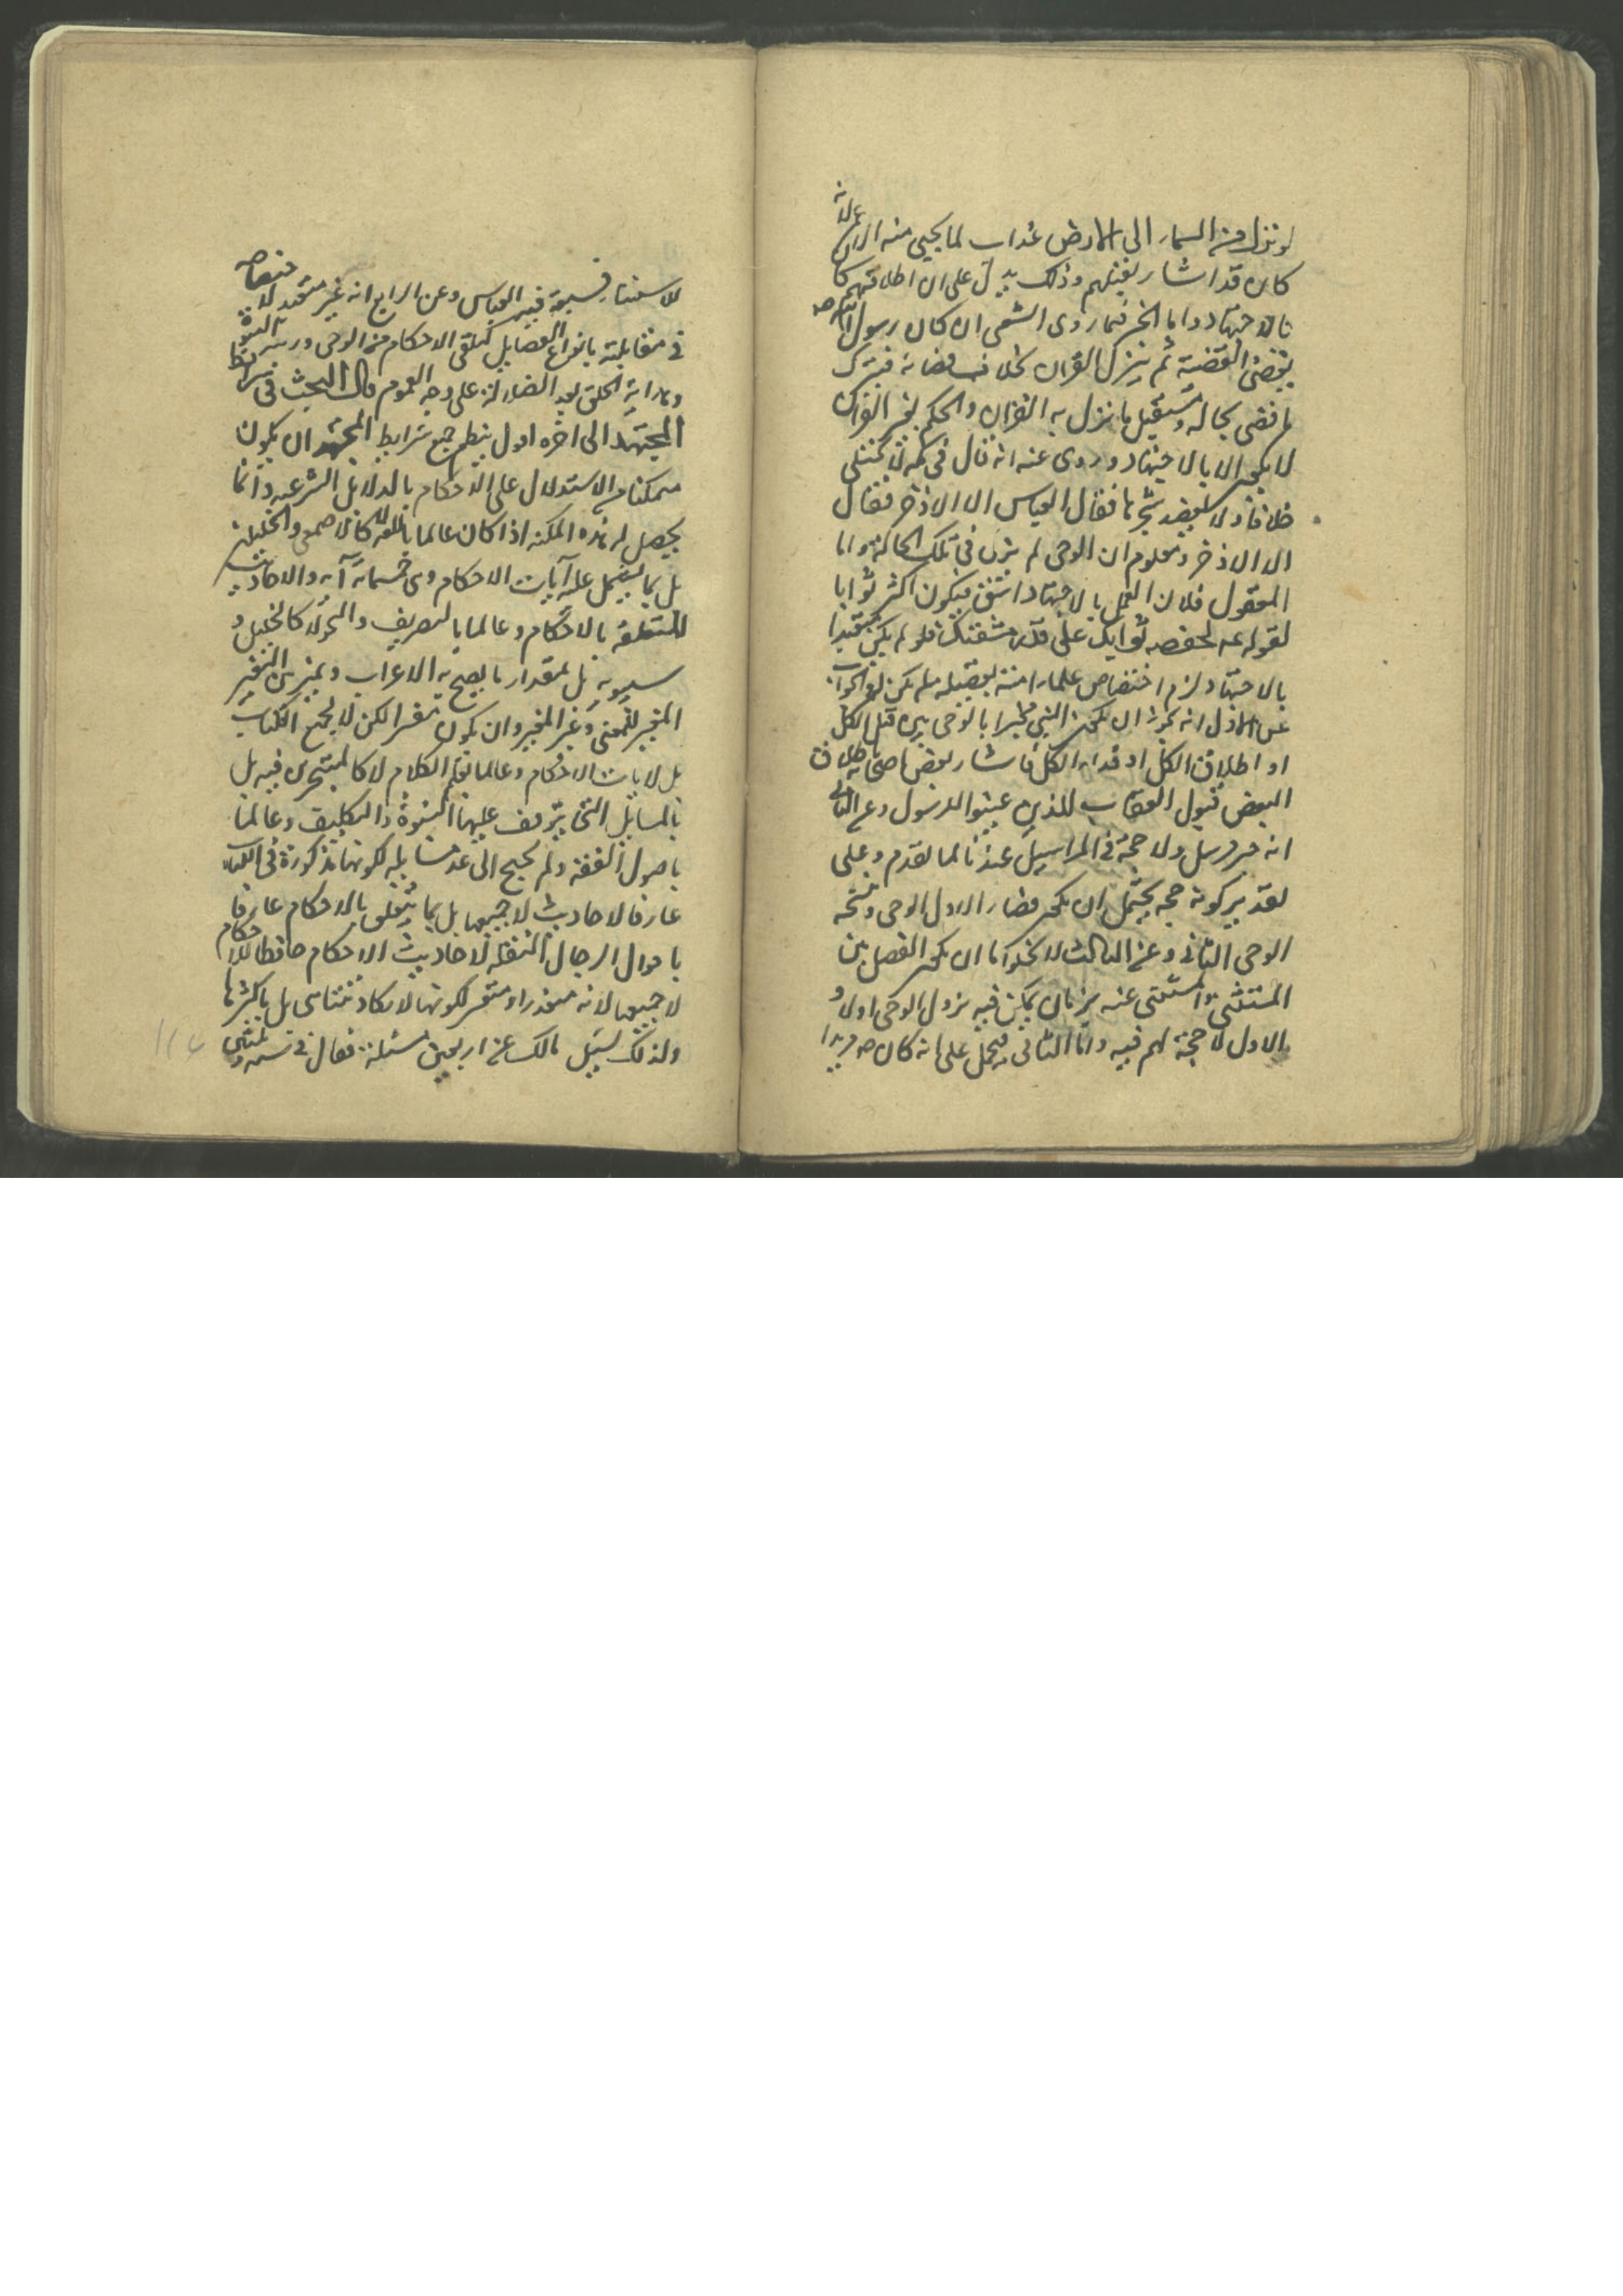 لو نزل من السماء الى الارض عذاب لما يحيى منه الا ابن لانه
كان قد اشار بقتلهم وذلك يدل على ان اطلاقهم كا
بالاجتهاد واما الخبر فما روى الشعبى ان كان رسول الله ص
يقضى القضية ثم ينزل القران بخلاف قضائه فيترك
ما قضى بحاله ويستقبل ما نزل به القران والحكم بغير القران
لا يكون الا بالاجتهاد وروى عنه انه قال فى مكة لا يختلى
خلاها ولا يعضد شجرها فقال العباس الا الاذخر فقال
الا الاذخر ومعلوم ان الوحى لم ينزل فى تلك الحالة واما
المعقول فلان العمل بالاجتهاد اشق فيكون اكثر ثوابا
لقوله ع لحفصه ثوابك على قدر مشقتك فلو لم يكن متعبدا
بالاجتهاد لزم اختصاص علماء امته بفضيله لم يكن له والجواب
عن الاول انه يجوز ان يكون النبى مخيرا بالوحى بين قتل الكل
او اطلاق الكل او فداء الكل فاشار بعض اصحابه باطلاق
البعض فنزل العتاب للذين عينوا لا لرسول وعن الثانى
انه خبر مرسل ولا حجة فى المراسيل عندنا لما تقدم وعلى
تقدير كونه حجه يحتمل ان يكون قضاء الاول الوحى ونسخه
الوحى الثانى وعن الثالث لا يخلو اما ان يكون الفصل بين
المستثنى والمستثنى عنه بزمان يمكن فيه نزول الوحى اولا و
الاول لا حجة لهم فيه واما الثانى فيحمل على انه كان ص مريدا
للاستثناء فسبقه فيه العباس وعن الرابع انه غير متحد لاختصاصه
فى مقابلته بانواع الفضايل كتلقى الاحكام من الوحى ورتبة النبوة
وهداية الخلق بعد الضلالة على وجه العموم قال البحث فى شرايط
المجتهد الى اخره اقول ينظم جميع شرايط المجتهد ان يكون
متمكنا من الاستدلال على الاحكام بالدلائل الشرعيه وانما
يحصل له هذه المكنه اذا كان عالما باللغة لا كالاصمعى والخليل
بل بما يشتمل عليه آيات الاحكام وهى خمسمائة آيه والاحاديث
المتعلقة بالاحكام وعالما بالتصريف والنحو لا كالخليل و
سيبويه بل بمقدار ما يصح به الاعراب ويميز بين التغيير
المغير للمعنى وغير المغير وان يكون مفسرا لكن لا لجميع الكتاب
بل لايات الاحكام وعالما بعلم الكلام لا كالمتبحرين فيه بل
بالمسايل التى يتوقف عليها النبوة والتكليف وعالما
باصول الفقه ولم يحتج الى عد مسايله لكونها مذكورة فى الكتاب
عارفا لاحاديث لا جميعها بل بما يتعلق بالاحكام عارفا
باحوال الرجال النقله لاحاديث الاحكام حافظا للاحكام
لا جميعها لانه متعذر او متعسر لكونها لا يكاد تتناهى بل باكثرها
ولذلك سئل مالك عن اربعين مسئلة فقال فى ستة و ثلثين